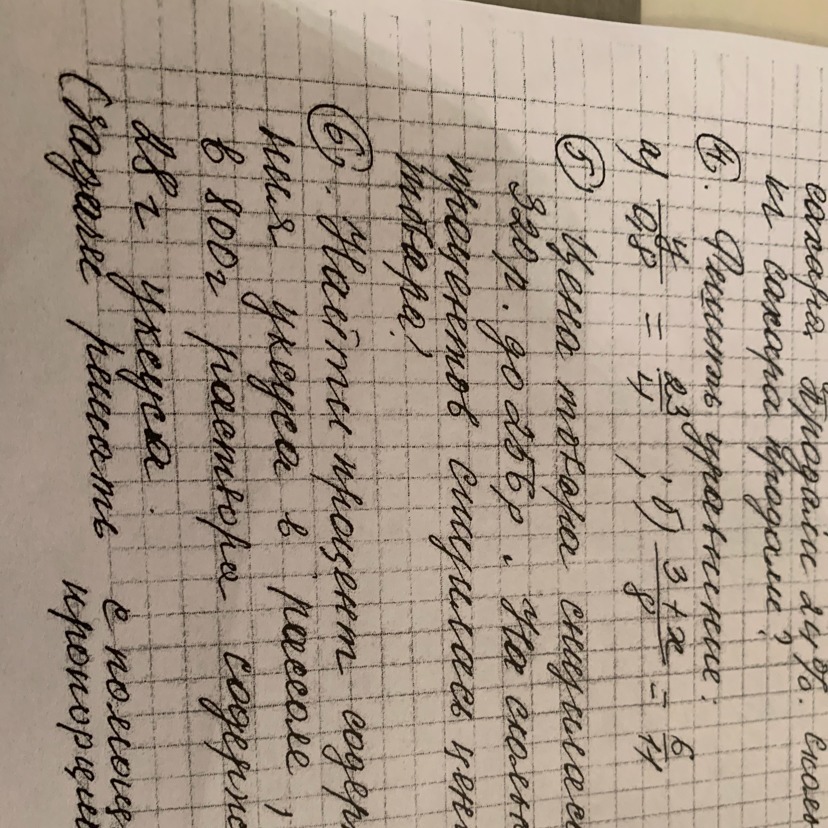 сахара. Продали 24%. Сколь
кг сахара продали?
4. Решить уравнение:
а) y/0,8 = 23/4 ; б) (3+x)/8 = 6/11
5. Цена товара снизилас
320 р. до 256 р. На сколь
процентов снизилась цен
товара?
6. Найти процент содер
ния уксуса в рассоле,
в 800г раствора содерж
28 г уксуса.
(Задачи решать с помощ
пропорции